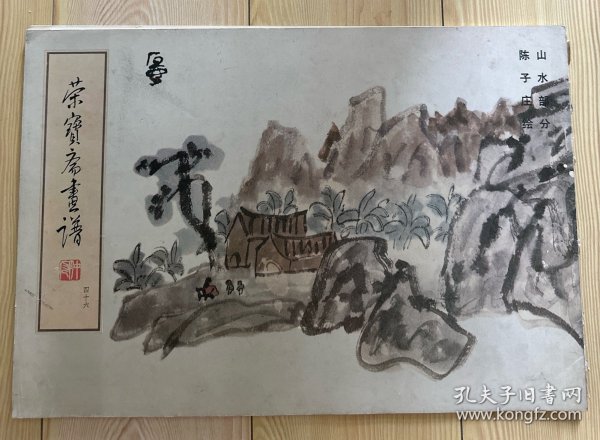 荣宝斋画谱
四十六
山水部分
陈子庄绘
孔夫子旧书网
www.kongfz.com